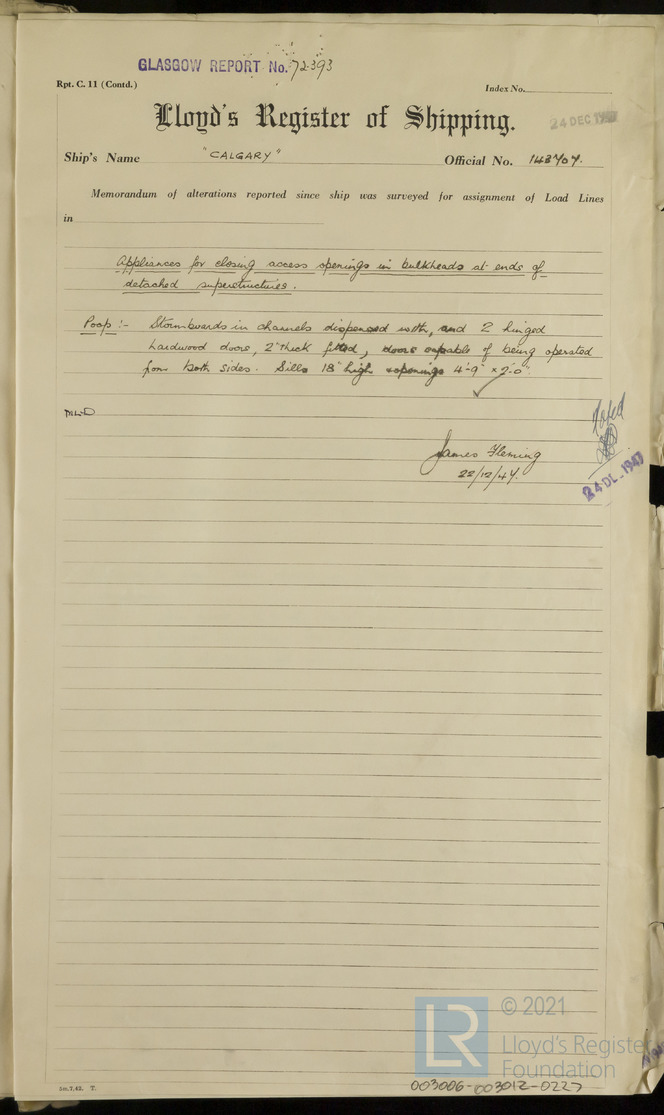 GLASGOW REPORT No. 72393
Rpt. C. 11 (Contd.)
Index No.
Lloyd's Register of Shipping.
24 DEC 1947
Ship's Name "CALGARY" Official No. 143707.
Memorandum of alterations reported since ship was surveyed for assignment of Load Lines
in
Appliances for closing access openings in bulkheads at ends of
detached superstructures.
Poop :- Stormboards in channels dispensed with, and 2 hinged
hardwood doors, 2" thick fitted, doors capable of being operated
from both sides. Sills 18" high openings 4'-9" x 2'-0".
Noted
James Fleming
22/12/47.
24 DE 1947
© 2021
LR
Lloyd's Register
Foundation
5m,7,42. T.
003006-003012-0227